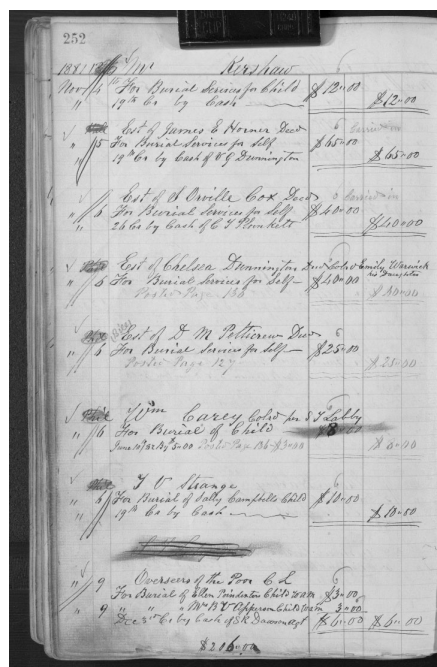 252
1881 Mr Kershaw
Nov 4th For Burial Services for Child $12"00
" 19th Cr by Cash $12"00
Est of James E Horner Decd
" 5 For Burial Services for Self $65"00
" 19th Cr by Cash of V G Dunnington $65"00
Est of J Orville Cox Decd
" 6 For Burial Services for Self $40"00
" 26 Cr by Cash of C T Plunkett $40"00
Est of Chelsea Dunnington Decd Colrd Emily Warwick
his Daughter
" 6 For Burial Services for Self $40"00
Posted Page 136 $40"00
Est of D M Petticrew Decd
" 6 For Burial Services for Self $25"00
Posted Page 127 $25"00
Wm Carey Colrd per S T Labby
" 6 For Burial of Child $8"00
June 10th 82 By $5"00 Posted Page 136 $3"00
T V Strange
" 6 For Burial of Sally Campbells Child $10"00
" 19th Cr by Cash $10"00
Overseers of the Poor C L
" 9 For Burial of Ellen Pinderton Child $3"00
" 9 " " " Mrs B V Apperson Child 3"00
Dec 3rd Cr by Cash of S R Dawson agt $6"00 $6"00
$206"00